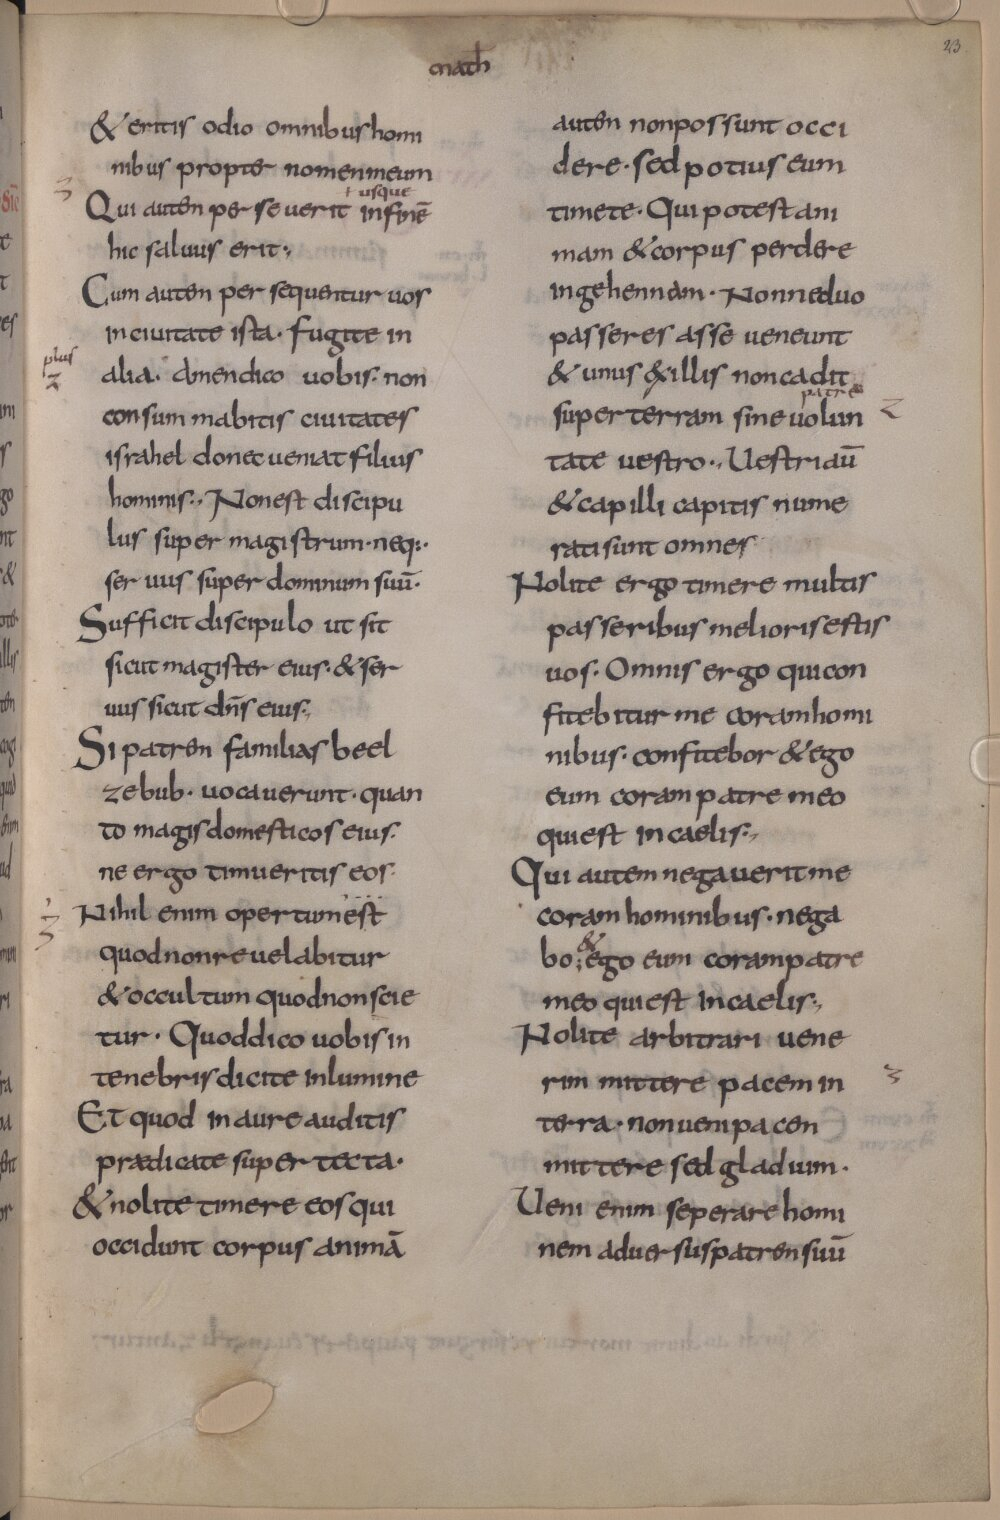 math
23
& eritis odio omnibus homi
nibus propter nomen meum
Qui autem perseverit usque in finē
hic salvus erit
Cum autem persequentur vos
in civitate ista · fugite in
plus
alia · amen dico vobis · non
consummabitis civitates
israhel donec veniat filius
hominis · Non est discipu
lus super magistrum · neq:
servus super dominum suū ·
Sufficit discipulo ut sit
sicut magister eius · & ser
vus sicut dn̄s eius
Si patrem familias beel
zebub · vocaverunt · quan
to magis domesticos eius ·
ne ergo timueritis eos ·
Nihil enim opertum est
quod non revelabitur
& occultum quod non scie
tur · Quod dico vobis in
tenebris dicite in lumine
Et quod in aure auditis
praedicate super tecta ·
& nolite timere eos qui
occidunt corpus animā
autem non possunt occi
dere · sed potius eum
timete · Qui potest ani
mam & corpus perdere
in gehennam · Nonne duo
passeres asse veneunt
& unus & illis non cadit
super terram sine volun
tate vestro · Vestri aū
& capilli capitis nume
rati sunt omnes
Nolite ergo timere multis
passeribus melioris estis
vos · Omnis ergo qui con
fitebitur me coram homi
nibus · confitebor & ego
eum coram patre meo
qui est in caelis
Qui autem negaverit me
coram hominibus · nega
bo & ego eum coram patre
meo qui est in caelis
Nolite arbitrari vene
rim mittere pacem in
terra · non veni pacem
mittere sed gladium ·
Veni enim seperare homi
nem adversus patrem suū